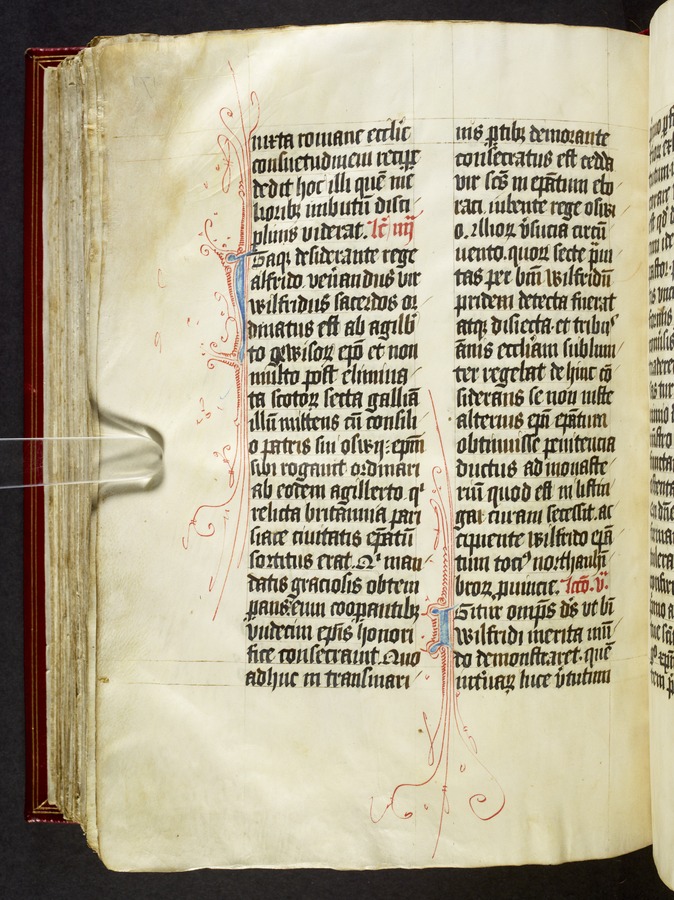 iuxta romane ecclie
consuetudinem recipe
dedit hoc illi quē me
lioribꝫ imbutū disci
plinis viderat. lc̄ iiij
Itaqꝫ desiderante rege
alfrido. ven̄andus vir
wilfridus sacerdos or
dinatus est ab agilb
to epō et non
multo post elimina
ta scotoꝝ secta galliā
illū mittens cū consili
o patris sui oswij: epm̄
sibi rogauit ordinari
ab eodem agillerto. qͥ
relicta britannia pari
siace ciuitatis ep̄atū
sortitus erat. Qͥ man
datis graciosis obtem
ꝑans. eum cooꝑantibꝫ
vndecim ep̄is honori
fice consecrauit. Quo
adhuc in transmari
nis ꝑtibꝫ demorante
consecratus est cedda
vir scs̄ in ep̄atum ebo
raci. iubente rege oswi
o. illoꝝ v̄sucia circū
uento. quoꝝ secte p̄ui
tas per bm̄ wilfridū
pridem detecta fuerat
atqꝫ disiecta. et tribꝰ
ānis eccl̄iam sublimi
ter regebat dehinc cō
siderans se non iuste
alterius ep̄i ep̄atum
obtinuisse penitencia
ductus ad monaste
riū quod est in listin
gai curam secessit. ac
cipiente wilfrido ep̄a
tum tociꝰ northanhī
broꝝ ꝓuincie. lccō. v.
Igitur omp̄s ds̄ vt bī
wilfridi merita mū
do demonstraret. quē
mutuaꝝ luce v̄tutum